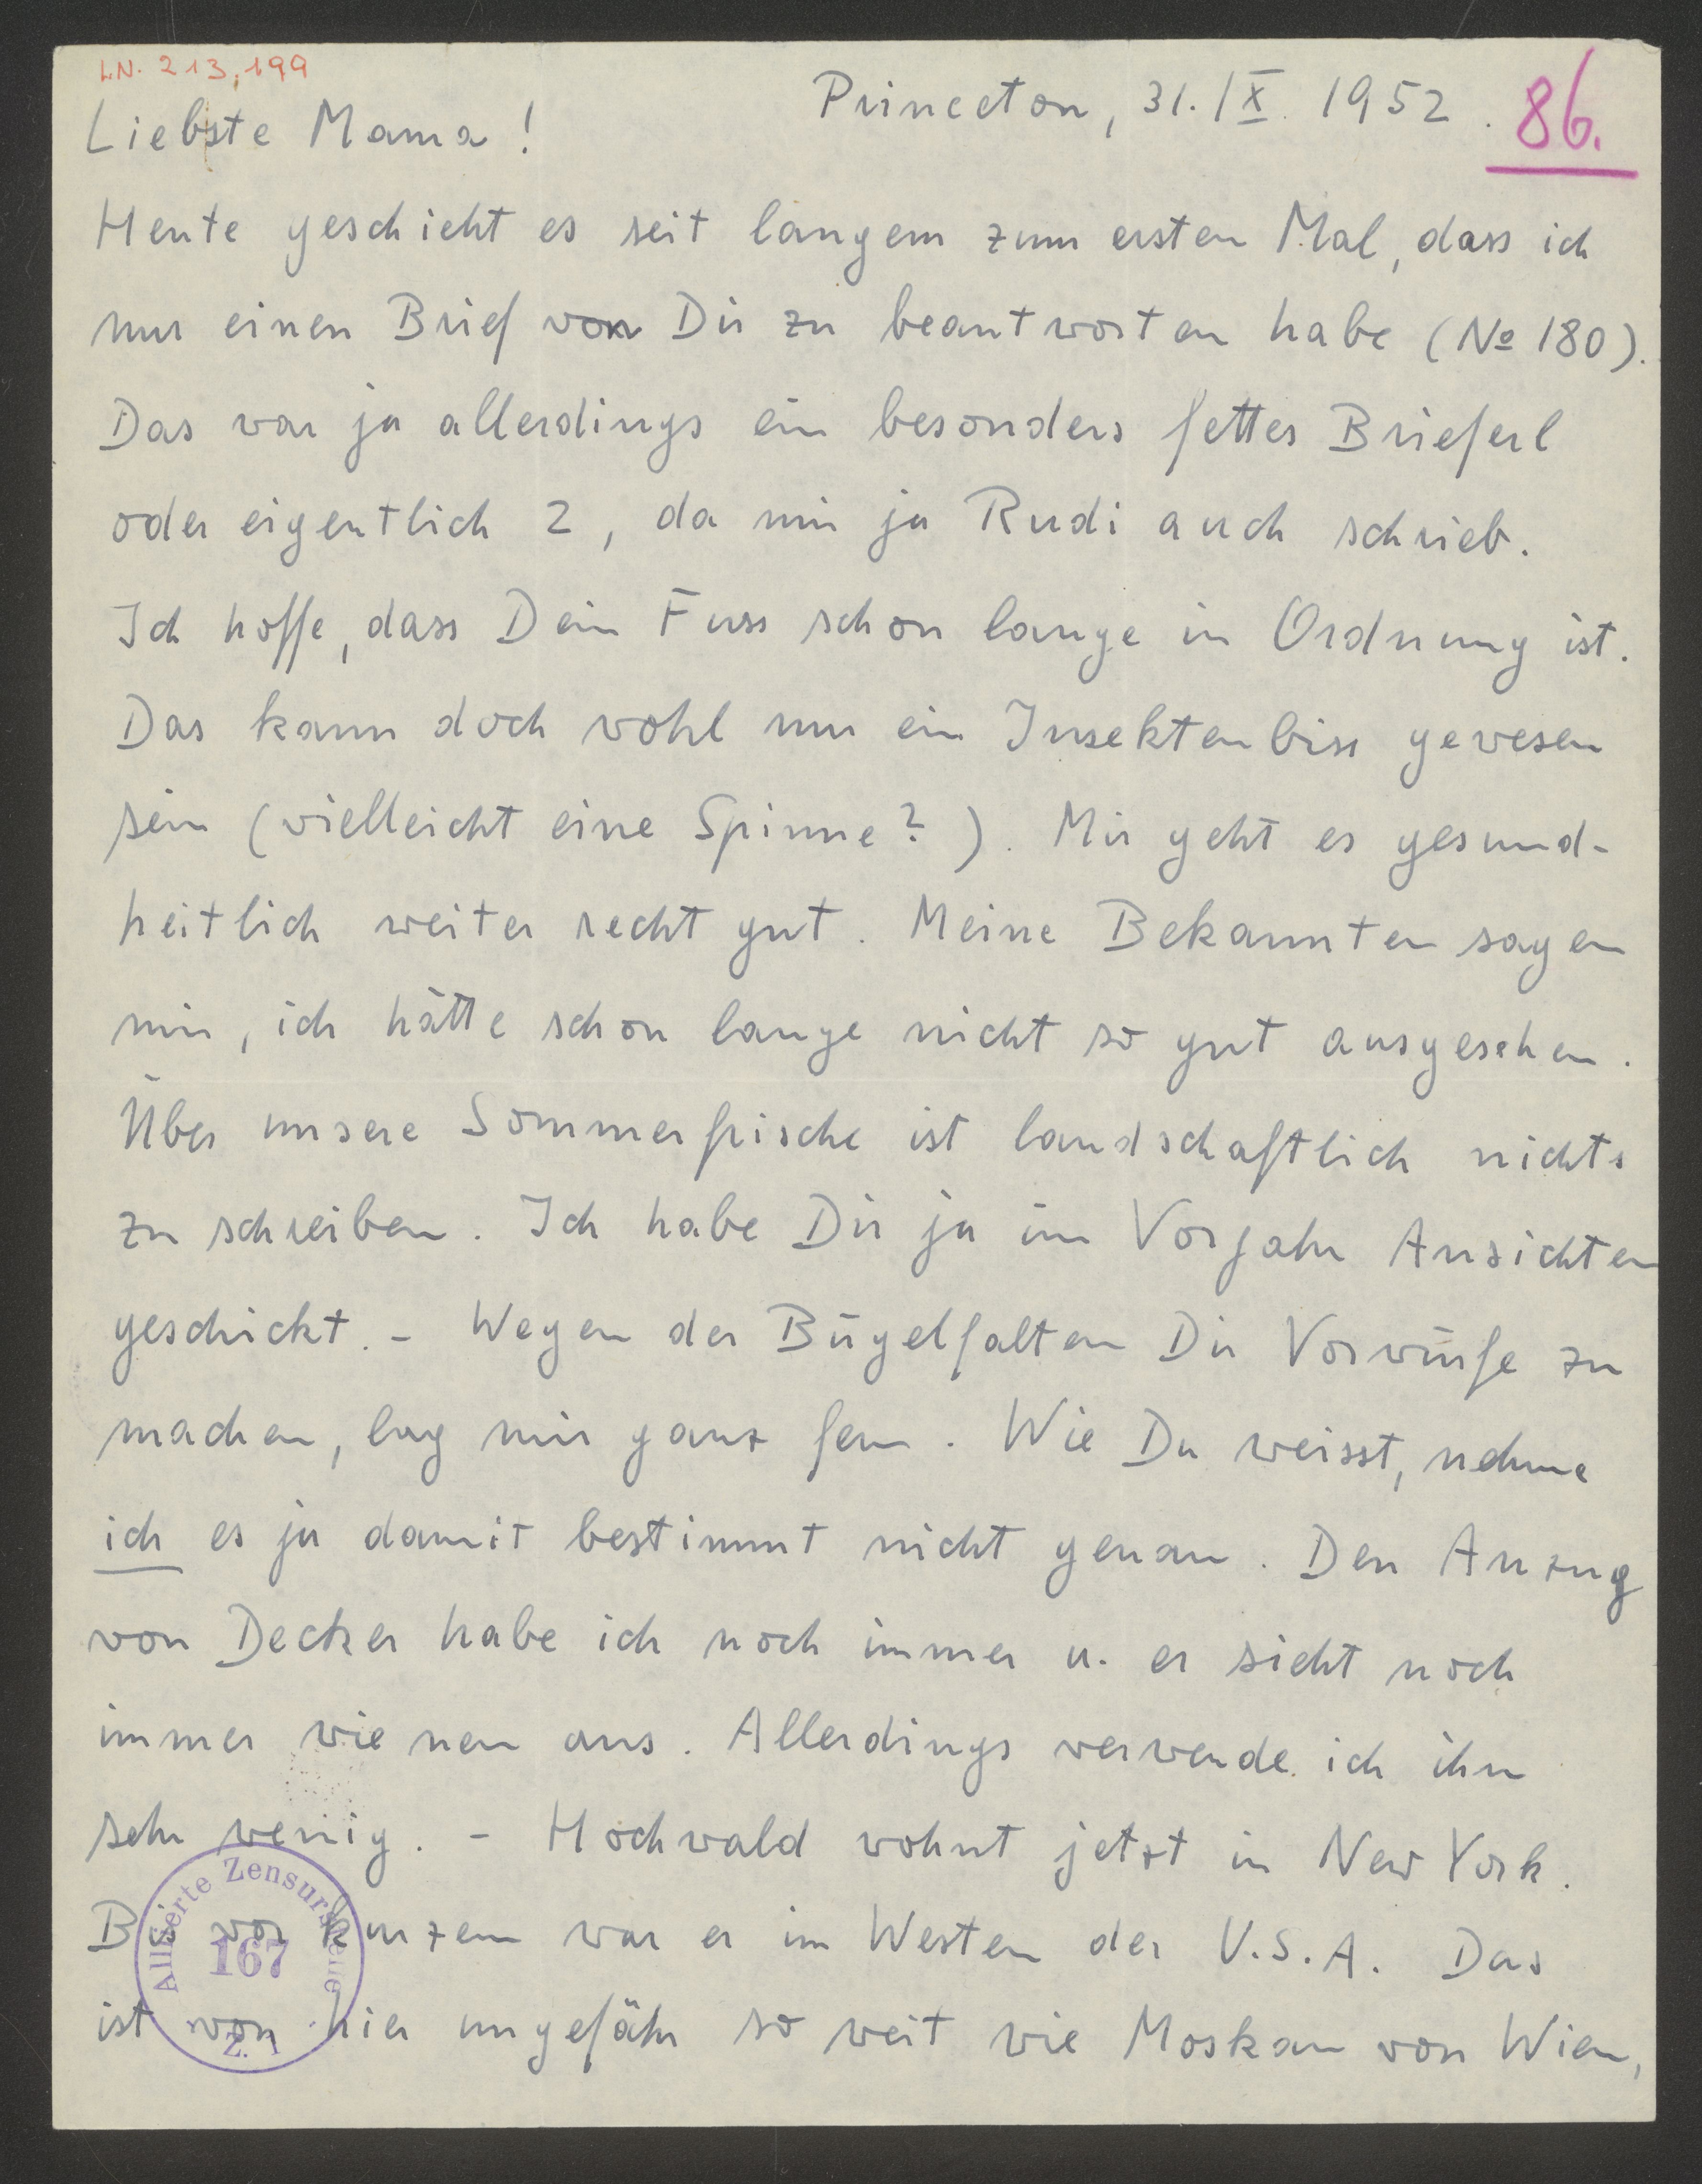 LN. 213,199
Princeton, 31. IX. 1952. 86.
Liebste Mama!
Heute geschieht es seit langem zum ersten Mal, dass ich
nur einen Brief von Dir zu beantworten habe (No 180).
Das war ja allerdings ein besonders fettes Brieferl
oder eigentlich 2, da mir ja Rudi auch schrieb.
Ich hoffe, dass Dein Fuss schon lange in Ordnung ist.
Das kann doch wohl nur ein Insektenbiss gewesen
sein (vielleicht eine Spinne?). Mir geht es gesund-
heitlich weiter recht gut. Meine Bekannten sagen
mir, ich hätte schon lange nicht so gut ausgesehen.
Über unsere Sommerfrische ist landschaftlich nichts
zu schreiben. Ich habe Dir ja im Vorjahr Ansichten
geschickt. - Wegen der Bügelfalten Dir Vorwürfe zu
machen, lag mir ganz fern. Wie Du weisst, nehme
ich es ja damit bestimmt nicht genau. Den Anzug
von Decker habe ich noch immer u. er sieht noch
immer wie neu aus. Allerdings verwende ich ihn
sehr wenig. - Hochwald wohnt jetzt in New York.
Bis vor kurzem war er im Westen der U.S.A. Das
ist von hier ungefähr so weit wie Moskau von Wien,
Alliierte Zensurstelle
167
Z. 1